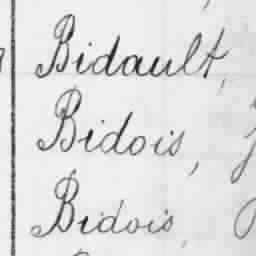 Bidault,
Bidois,
Bidois,